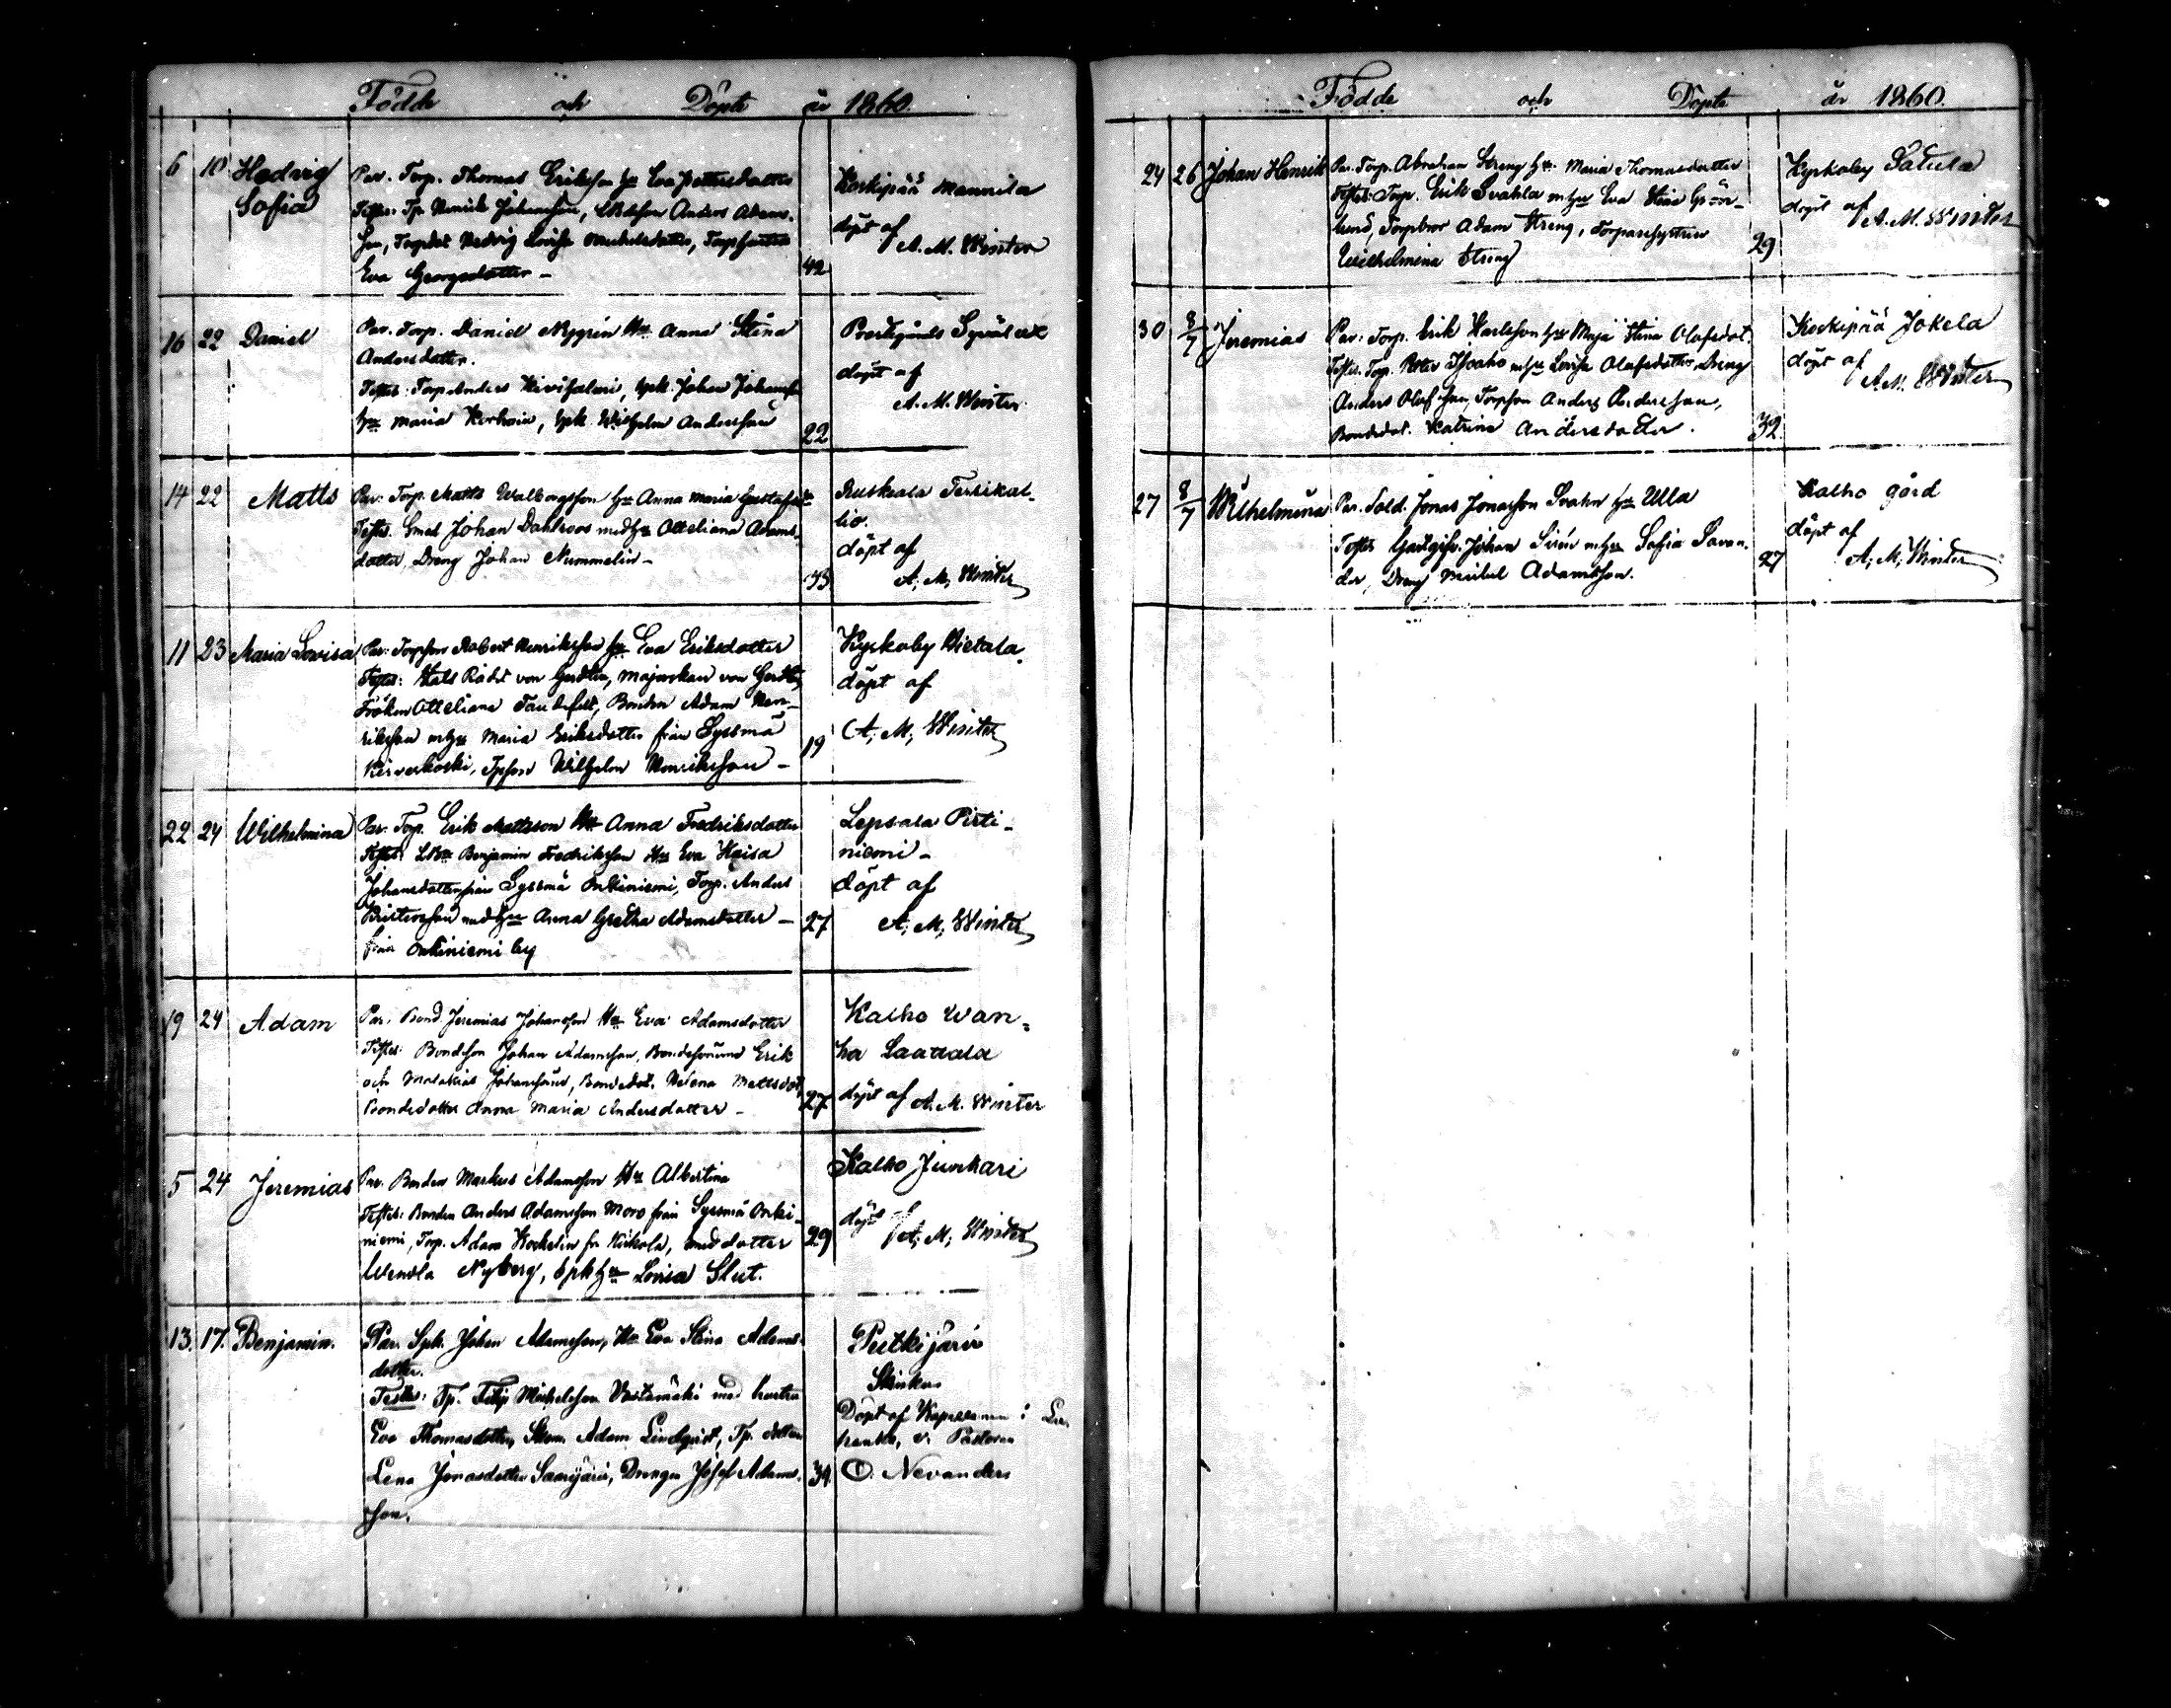 Födde och Döpte år 1860.
6 10 Hedvig Sofia
Par. Torp. Thomas Eriksson hu Eva Pettersdotter
Testes: Tp. Henrik Johansson, Anders Adams-
son, Torpdot. Hedvig Lovisa Michelsdotter, Torphustru
Eva Georgsdotter –
42
Koskipää Mannila
döpt af
A. M. Winter
16 22 Daniel
Par. Torp. Daniel Nygrén Hu Anna Stina
Andersdotter.
Testes: Torp. Anders Kivisalmi, Spk. Johan Johansson
hu Maria, Spk. Wilhelm Andersson
22
döpt af
A. M. Winter
14 22 Matts
Par: Torp. Matts Walborgsson hu Anna Maria Gustafsd:r
Testes. Smed Johan Dahlroos med hu Otteliana Adams-
dotter, Dreng Johan Nummelin –
33
Ruskeala Terrikal-
lio.
döpt af
A; M; Winter
11 23 Maria Lovisa
Par: Torpson Robert Henriksson hu Eva Eriksdotter
Testes: Stats Rådet von Gerdten, Majorskan von Gerdten,
Fröken Otteliana Taubefelt, Bonden Adam Hen-
riksson m hu Maria Eriksdotter från Syssmä
Kirverkoski, Tpson Wilhelm Henriksson –
19
Kyrkoby Hietala
döpt af
A; M; Winter
22 24 Wilhelmina
Par. Torp. Erik Mattsson Hu Anna Fredriksdotter
Testes: Benjamin Fredriksson Hu Eva Kaisa
Johansdotter från Syssmä Onkiniemi, Torp. Anders
med hu Anna Gretha Adamsdotter –
från Onkiniemi by
27
Lepsala Pirti-
niemi –
döpt af
A; M; Winter
19 24 Adam
Par. Bond. Jeremias Johansson Hu Eva Adamsdotter
Testes: Bondeson Johan Adamsson, Bondesönerne Erik
och Malakias Johanssöner, Bondedot. Helena Mattsdot,
Bondedotter Anna Maria Andersdotter –
27
Kalho Wan-
ha Laattala
döpt af A. M. Winter
5 24 Jeremias
Par. Bonden Markus Adamsson Hu Albertina
Testes: Bonden Anders Adamsson Moro från Syssmä Onki-
niemi, Torp. Adam Koskelin fr Nickola, med dotter
Wendla Nyberg, Spk hu Lovisa Slut.
29
Kalho Junkari
döpt af A; M; Winter
13. 17. Benjamin.
Par. Spk. Johan Adamsson, Hu Eva Stina Adams-
dotter.
Testes: Tp. Filip Michelsson Vestamäki med hustru
Eva Thomasdotter, Adam Lindqvist, Tp. dottern
Lena Jonasdotter Saarijärvi, Drengen Josef Adams-
son.
34
Putkijärvi
Döpt af Kapellanen i
v. Pastoren
O. Nevander
Födde och Döpte år 1860.
24 26 Johan Henrik
Par. Torp. Abraham Streng hu Maria Thomasdotter
Testes: Torp. Erik Svahla m hu Eva Stina Grön-
lund, Torpbror Adam Streng, Torparesystern
Wilhelmina Streng
29
Kyrkoby Satula
döpt af
A. M. Winter
30 8/7 Jeremias
Par: Torp. Erik Karlsson hu Maja Stina Olofsdot.
Testes. Torp. Peter m hu Lovisa Olofsdotter, Dreng
Anders Olofsson, Torpson Anders Andersson,
Bondedot. Katrina Andersdotter.
32
Koskipää Jokela
döpt af
A. M. Winter
27 8/7 Wilhelmina
Par. Sold. Jonas Jonasson Svahn hu Ulla
Testes Gästgifv. Johan Sirén m hu Sofia Savan-
der, Dreng Mickel Adamsson.
27
Kalho gård
döpt af
A; M; Winter